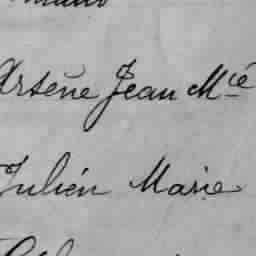 Arsène Jean Mié
Julien Marie